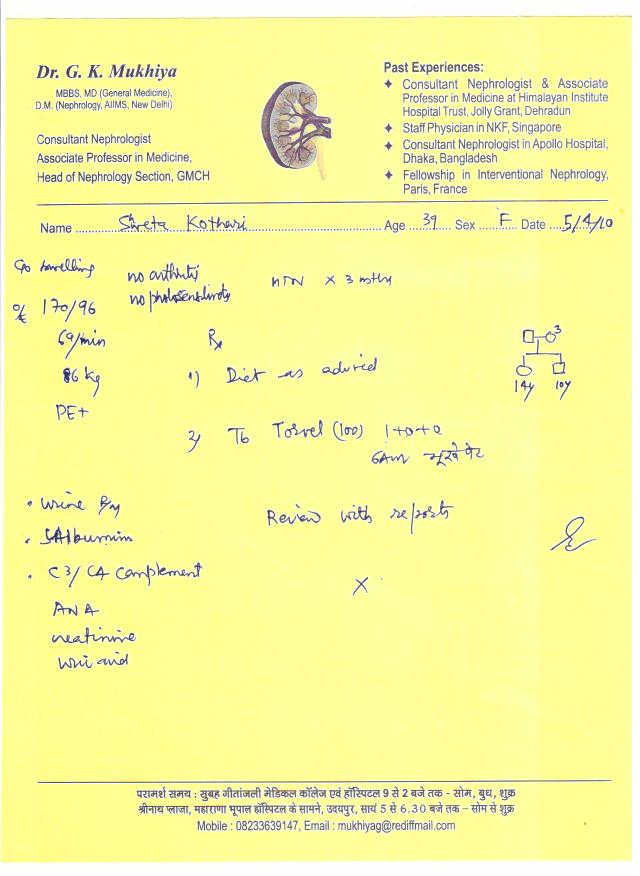 Dr. G. K. Mukhiya
MBBS, MD (General Medicine),
D.M. (Nephrology, AIIMS, New Delhi)
Consultant Nephrologist
Associate Professor in Medicine,
Head of Nephrology Section, GMCH
Past Experiences:
✦ Consultant Nephrologist & Associate
Professor in Medicine at Himalayan Institute
Hospital Trust, Jolly Grant, Dehradun
✦ Staff Physician in NKF, Singapore
✦ Consultant Nephrologist in Apollo Hospital,
Dhaka, Bangladesh
✦ Fellowship in Interventional Nephrology,
Paris, France
Name Shreta Kothari Age 39 Sex F Date 5/4/10
C/o swelling no arthritis HTN x 3 mths
no photosensitivity
O/E 170/96
69/min Rx
3
86 kg 1) Diet as advised
14y 10y
PE+
2) Tb Torvel (100) 1+0+0
6AM भूखे पेट
• urine R/M
Review with reports
• S Albumin
• C3/C4 complement
X
ANA
creatinine
uric acid
परामर्श समय : सुबह गीतांजली मेडिकल कॉलेज एवं हॉस्पिटल 9 से 2 बजे तक - सोम, बुध, शुक्र
श्रीनाथ प्लाजा, महाराणा भूपाल हॉस्पिटल के सामने, उदयपुर, सायं 5 से 6.30 बजे तक – सोम से शुक्र
Mobile : 08233639147, Email : mukhiyag@rediffmail.com